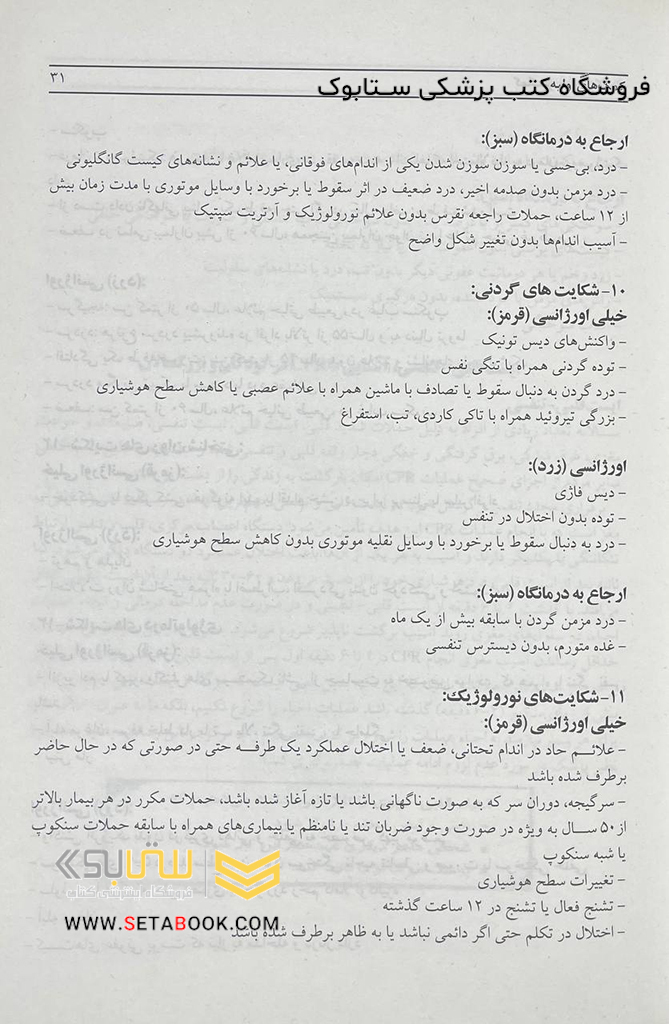 ۳۱
فروشگاه کتب پزشکی ستابوک
ارجاع به درمانگاه (سبز):
– درد، بی‌حسی یا سوزن سوزن شدن یکی از اندام‌های فوقانی، یا علائم و نشانه‌های کیست گانگلیونی
– درد مزمن بدون صدمه اخیر، درد ضعیف در اثر سقوط یا برخورد با وسایل موتوری با مدت زمان بیش
از ۱۲ ساعت، حملات راجعه نقرس بدون علائم نورولوژیک و آرتریت سپتیک
– آسیب اندام‌ها بدون تغییر شکل واضح
۱۰– شکایت های گردنی:
خیلی اورژانسی (قرمز):
– واکنش‌های دیس تونیک
– توده گردنی همراه با تنگی نفس
– درد گردن به دنبال سقوط یا تصادف با ماشین همراه با علائم عصبی یا کاهش سطح هوشیاری
– بزرگی تیروئید همراه با تاکی کاردی، تب، استفراغ
اورژانسی (زرد):
– دیس فاژی
– توده بدون اختلال در تنفس
– درد به دنبال سقوط یا برخورد با وسایل نقلیه موتوری بدون کاهش سطح هوشیاری
ارجاع به درمانگاه (سبز):
– درد مزمن گردن با سابقه بیش از یک ماه
– غده متورم، بدون دیسترس تنفسی
۱۱– شکایت‌های نورولوژیک:
خیلی اورژانسی (قرمز):
– علائم حاد در اندام تحتانی، ضعف یا اختلال عملکرد یک طرفه حتی در صورتی که در حال حاضر
برطرف شده باشد
– سرگیجه، دوران سر که به صورت ناگهانی باشد یا تازه آغاز شده باشد، حملات مکرر در هر بیمار بالاتر
از ۵۰ سال به ویژه در صورت وجود ضربان تند یا نامنظم یا بیماری‌های همراه با سابقه حملات سنکوپ
یا شبه سنکوپ
– تغییرات سطح هوشیاری
– تشنج فعال یا تشنج در ۱۲ ساعت گذشته
– اختلال در تکلم حتی اگر دائمی نباشد یا به ظاهر برطرف شده باشد
ستابوک
فروشگاه اینترنتی کتاب
WWW.SETABOOK.COM